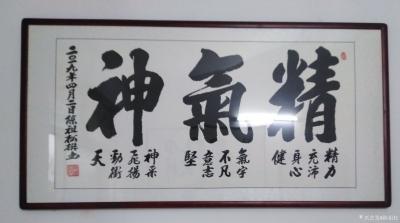 精氣神
精力
充沛
身心
健
氣宇
不凡
意志
堅
神采
飛揚
勁衝
天
二〇一九年四月二日 祖松撰書